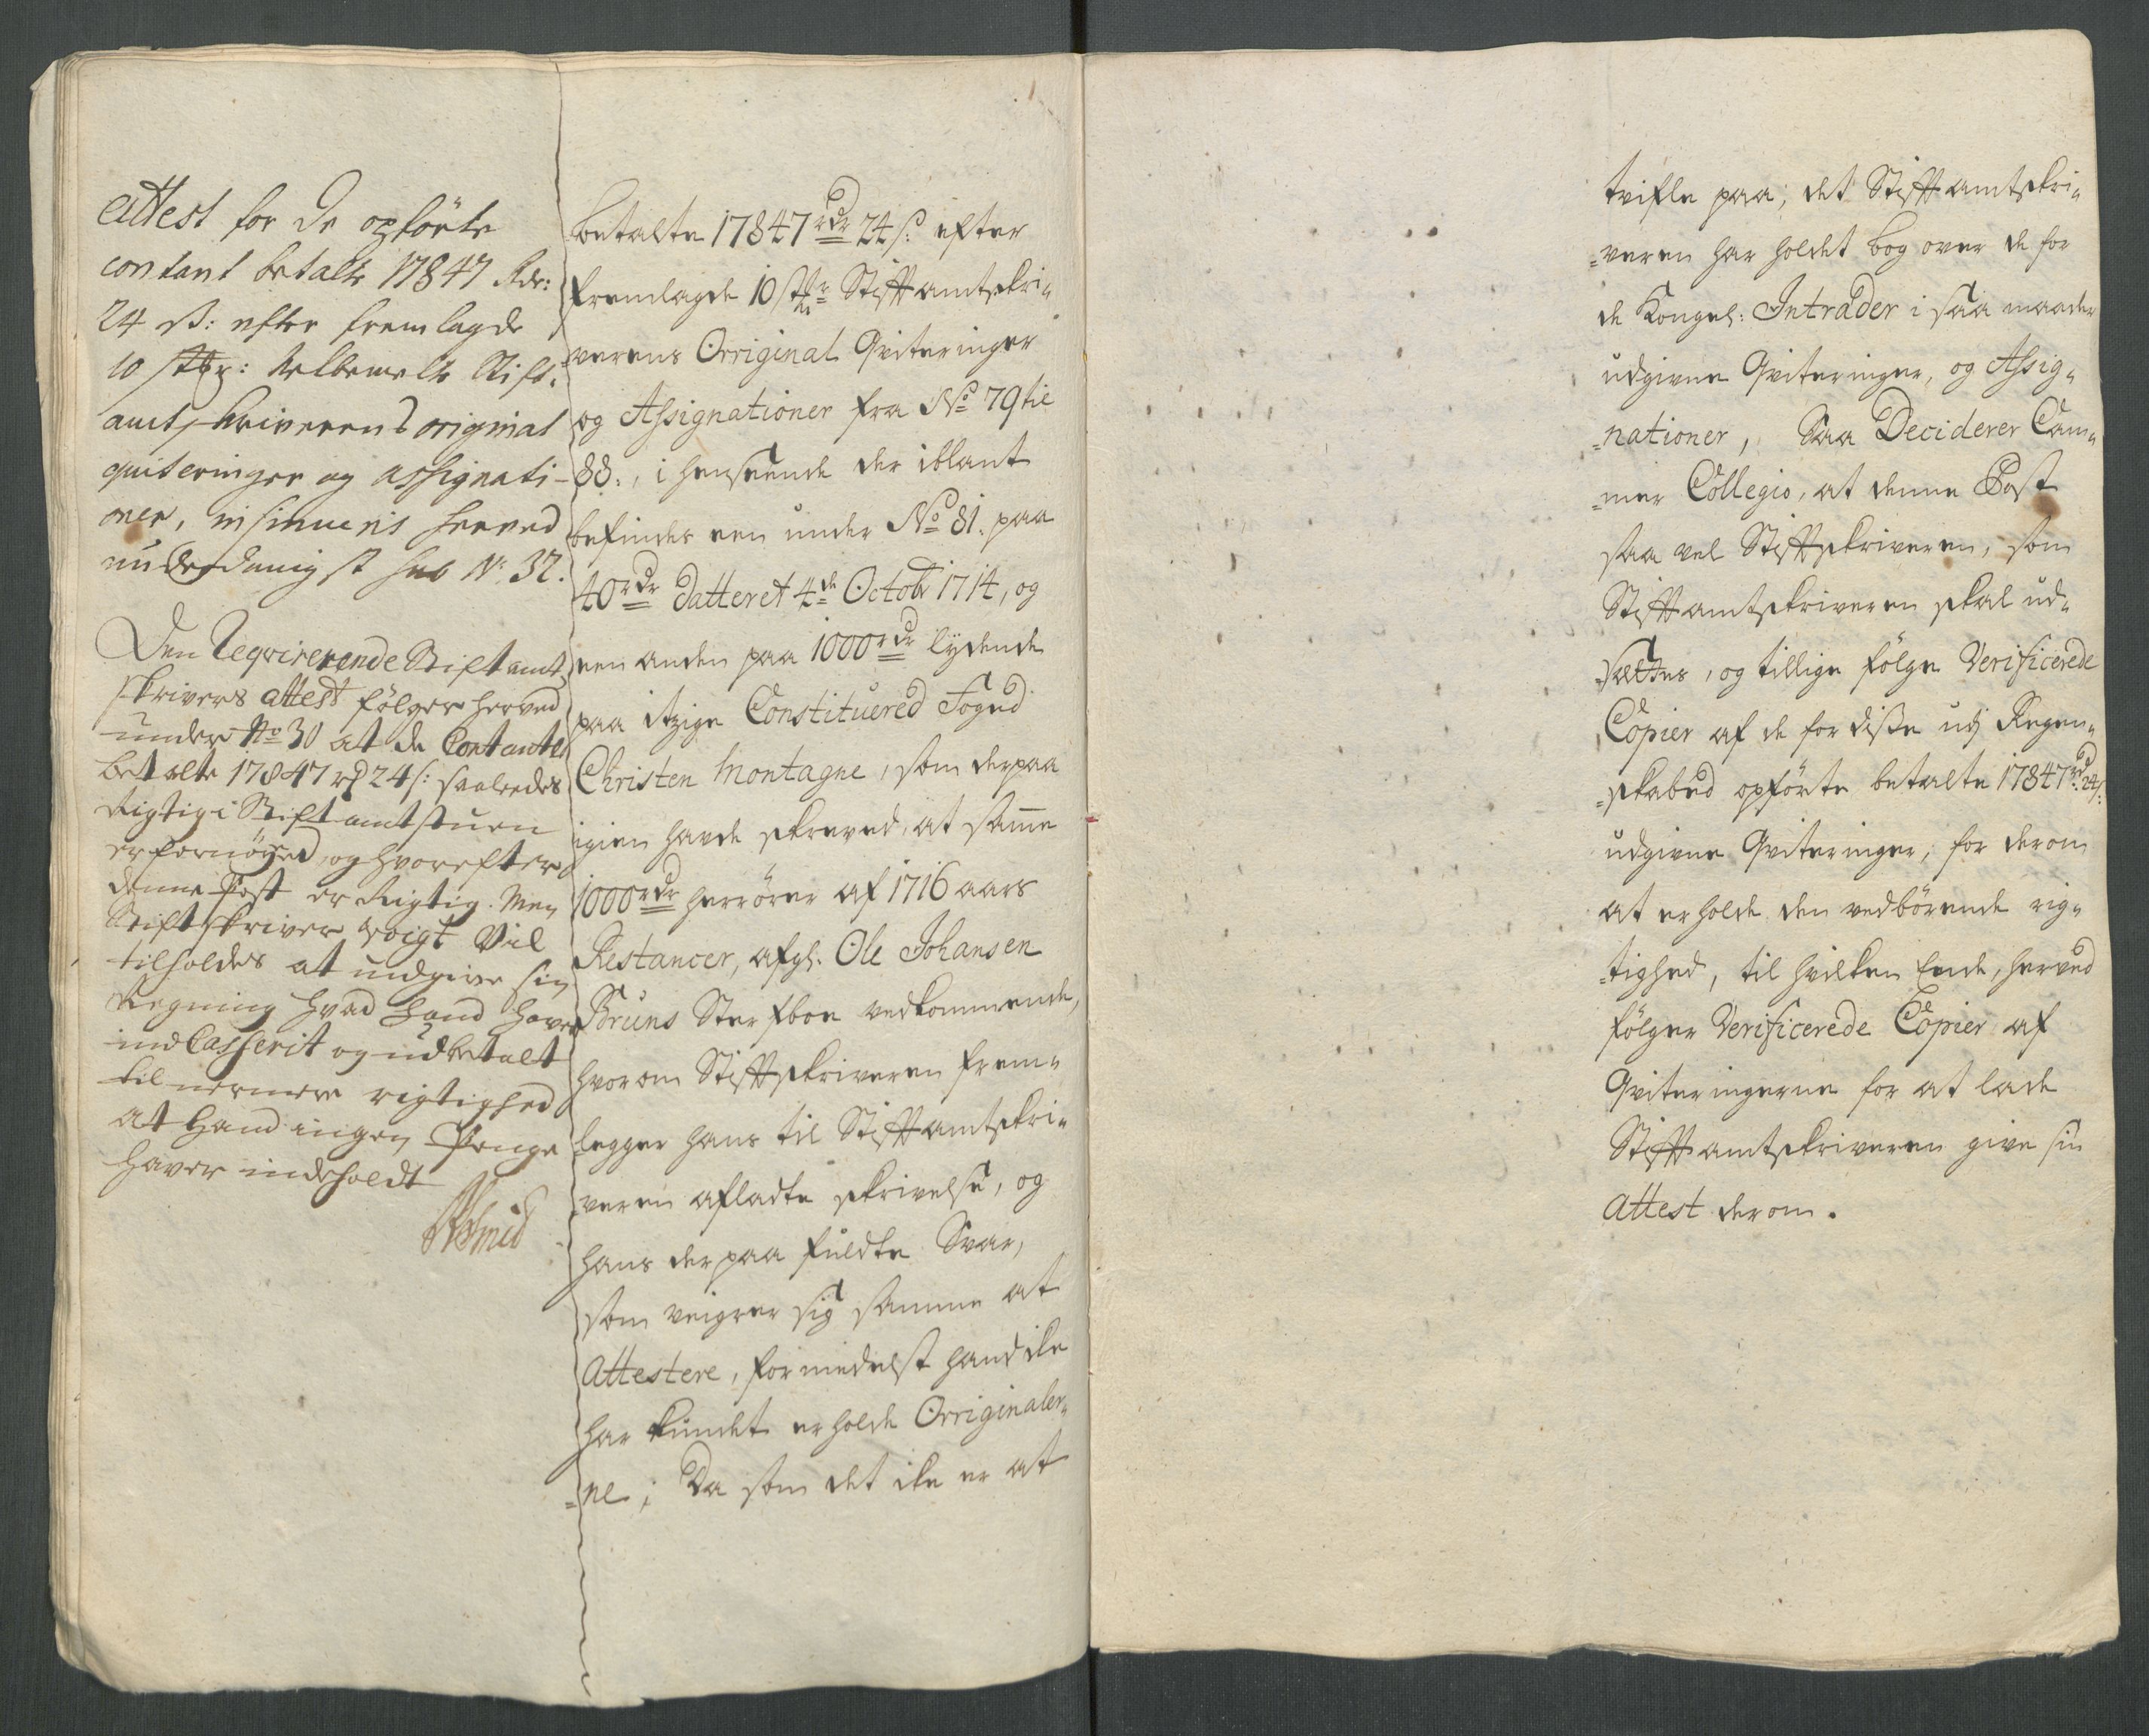 Attest for de opförte
contant betalte 17847 Rdr:
24 ß: efter fremlagde
10 stkr: velbemelte Stift-
amtskriverens original
quiteringer og assignati-
oner, insinueris herved
underdanigst sub No: 37.
Den Reqvirerende Stiftamt
skrivers attest fölger herved
under No 30 at de Contante
betalte 17847 rd 24 s: saaledes
Rigtig i Stiftamtstuen
er fornöyed, og hvorefter
denne Post er Rigtig. Men
Stiftskriver Voigt Vil
tilholdes at udgive sin
Regning hvad hand haver
indCasserit og udbetalt
til nermere rigtighed
at hand ingen Penge
haver indeholdt
betalte 17847 rdr 24 s: efter
fremlagde 10 stkr Stiftamtskri-
verens Orriginal Qviteringer
og Assignationer fra No 79 til
88:, i henseende der iblant
befindes een under No 81. paa
40 rdr Datteret 4de Octobr 1714, og
een anden paa 1000 rdr lydende
paa itzige Constituered Foged
Christen Montagne, som derpaa
igien havde skreved, at samme
1000 rdr herrörer af 1716 aars
Restancer, afgl. Ole Johansen
Bruuns Sterfboe vedkommende,
hvorom Stiftskriveren frem-
legger hans til Stiftamtskri-
veren afladte skrivelse, og
hans derpaa fuldte Svar,
som veigrer sig samme at
Attestere, formedelst hand ike
har kundet erholde Orriginaler-
ne; Da som det ike er at
tvifle paa, det Stiftamtskri-
veren har holdet bog over de for
de Kongel: Intrader i saa maader
udgivne Qviteringer, og Assig-
nationer, Saa Deciderer Cam-
mer Collegio, at denne Post
saa vel Stiftskriveren, som
Stiftamtskriveren skal ud-
settes, og tillige fölge Verificerede
Copier af de for disse udj Regen-
skabed opförte betalte 17847 rd 24 s:
udgivne Qviteringer, for derom
at erholde den vedbörende rig-
tighed, til hvilken Ende, herved
fölger Verificerede Copier af
Qviteringerne for at lade
Stiftamtskriveren give sin
Attest derom.